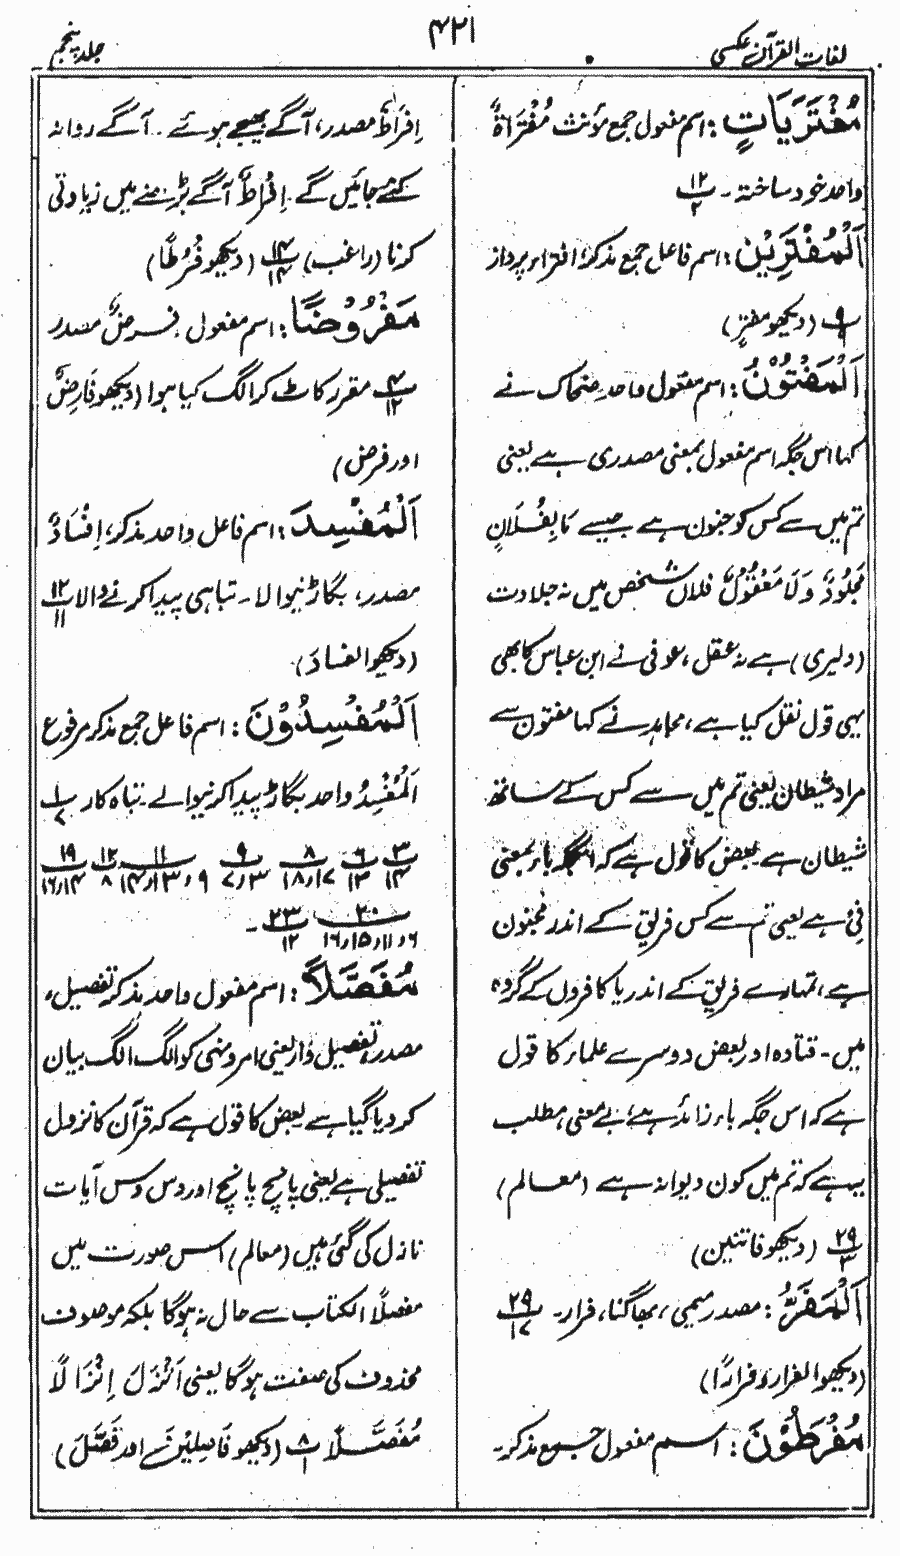 لغات القرآن عکسی
۴۲۱
جلد پنجم
مُفْتَرَیَاتٍ: اسم مفعول جمع مؤنث مُفْتَرَاۃٌ
واحد خود ساختہ ۔ ۱۲/۲
اَلْمُفْتَرِیْنَ: اسم فاعل جمع مذکر، افتراء پرداز
۹ (دیکھو مفترٍ)
اَلْمَفْتُوْنُ: اسم مفعول واحد ضحاک نے
کہا اس جگہ اسم مفعول بمعنی مصدری ہے یعنی
تم میں سے کس کو جنون ہے جیسے مَا بِفُلَانٍ
مَجْلُوْدٌ وَلَا مَعْقُوْلٌ فلاں شخص میں نہ جلادت
(دلیری) ہے نہ عقل، عوفی نے ابن عباس کا بھی
یہی قول نقل کیا ہے، مجاہد نے کہا مفتون سے
مراد شیطان یعنی تم میں سے کس کے ساتھ
شیطان ہے بعض کا قول ہے کہ اس جگہ باء بمعنی
فِیْ ہے یعنی تم سے کس فریق کے اندر مجنون
ہے، تمہارے فریق کے اندر یا کافروں کے گروہ
میں ۔ قتادہ اور بعض دوسرے علماء کا قول
ہے کہ اس جگہ باء زائد ہے، بے معنی، مطلب
یہ ہے کہ تم میں کون دیوانہ ہے (معالم)
۲۹/۳ (دیکھو فاتنین)
اَلْمَفَرُّ: مصدر میمی، بھاگنا، فرار ۔ ۲۹/۱۷
(دیکھو الفرار و فرارًا)
مُفْرَطُوْنَ: اسم مفعول جمع مذکر ۔
اِفْرَاطٌ مصدر، آگے بھیجے ہوئے ۔ آگے روانہ
کئے جائیں گے ۔ اِفْرَاطٌ آگے بڑھنے میں زیادتی
کرنا (راغب) ۱۴/۱۴ (دیکھو فُرُطًا)
مَفْرُوْضًا: اسم مفعول، فرضٌ مصدر
۴/۱۲ مقرر کاٹ کر الگ کیا ہوا (دیکھو فَارِضٌ
اور فرض)
اَلْمُفْسِدَ: اسم فاعل واحد مذکر، اِفْسَادٌ
مصدر، بگاڑنیوالا ۔ تباہی پیدا کرنے والا ۱۲/۱۱
(دیکھو الفسادَ)
اَلْمُفْسِدُوْنَ: اسم فاعل جمع مذکر مرفوع
اَلْمُفْسِدُ واحد بگاڑ پیدا کرنیوالے ۔ تباہ کار ۱/۲
۳/۱۴ ۶/۱۳ ۸/۱۷، ۱۸ ۹/۳، ۷ ۱۱/۹، ۱۳، ۱۴ ۱۲/۸ ۱۹/۱۴، ۱۶
۲۰/۶، ۱۱، ۱۵، ۱۶ ۲۳/۱۲ ۔
مُفَصَّلًا: اسم مفعول واحد مذکر تفصیل،
مصدر، تفصیل وار یعنی امر و نہی کو الگ الگ بیان
کر دیا گیا ہے بعض کا قول ہے کہ قرآن کا نزول
تفصیلی ہے یعنی پانچ پانچ اور دس دس آیات
نازل کی گئی ہیں (معالم) اس صورت میں
مفصلًا الکتاب سے حال نہ ہوگا بلکہ موصوف
محذوف کی صفت ہوگا یعنی اَنْزَلَ اِنْزَالًا
مُفَصَّلًا ۸/۱ (دیکھو فَاصِلِیْنَ اور فَصَّلَ)